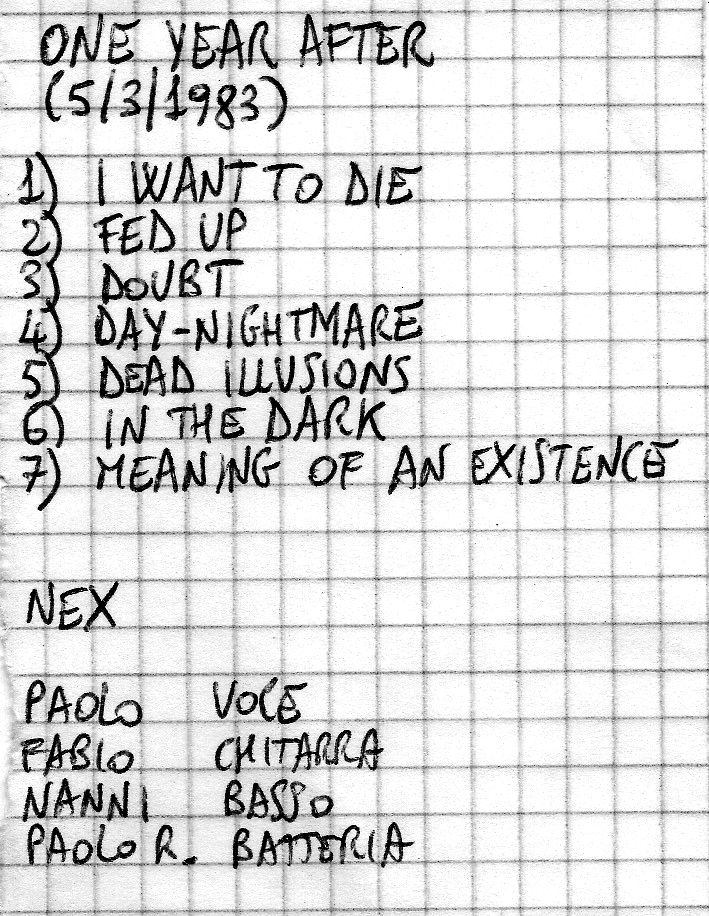 ONE YEAR AFTER
(5/3/1983)
1) I WANT TO DIE
2) FED UP
3) DOUBT
4) DAY-NIGHTMARE
5) DEAD ILLUSIONS
6) IN THE DARK
7) MEANING OF AN EXISTENCE
NEX
PAOLO VOCE
FABIO CHITARRA
NANNI BASSO
PAOLO R. BATTERIA